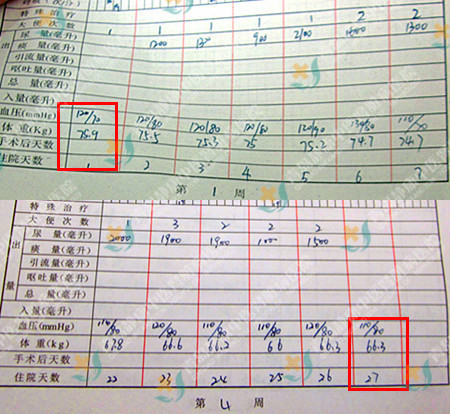 特殊治疗
大便次数 1 1 1 1 1 2 2
出 尿量(毫升) 1200 900 1300
痰量(毫升)
引流量(毫升)
呕吐量(毫升)
总量(毫升)
入量(毫升)
血压(mmHg) 120/70 120/80 120/80 120/80 120/90 110/80
体重(Kg) 75.9 75.5 75.3 75 75.2 74.7 74.7
手术后天数
住院天数 1 2 3 4 5 6 7
第 1 周
特殊治疗
大便次数 1 3 2 2 2
出 尿量(毫升) 2000 1900 1900 1500
痰量(毫升)
引流量(毫升)
呕吐量(毫升)
量 总量(毫升)
入量(毫升)
血压(mmHg) 110/80 120/80 110/80 110/80 120/80 110/80
体重(kg) 67.8 66.6 66.2 66 66.3 66.3
手术后天数
住院天数 22 23 24 25 26 27
第 4 周